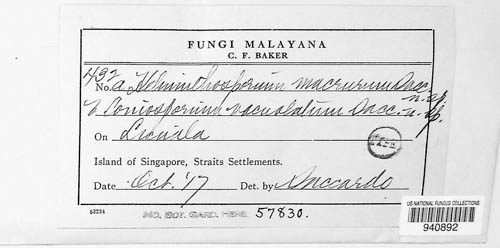 FUNGI MALAYANA
C. F. BAKER
432
No. a. Helminthosporium macrurum Sacc. n. sp.
b Coniosporium vacuolatum Sacc. n. sp.
On Licuala
TYPE
Island of Singapore, Straits Settlements.
Date Oct. '17 Det. by Saccardo
53234
MO. BOT. GARD. HERB. 57830.
US NATIONAL FUNGUS COLLECTIONS
940892